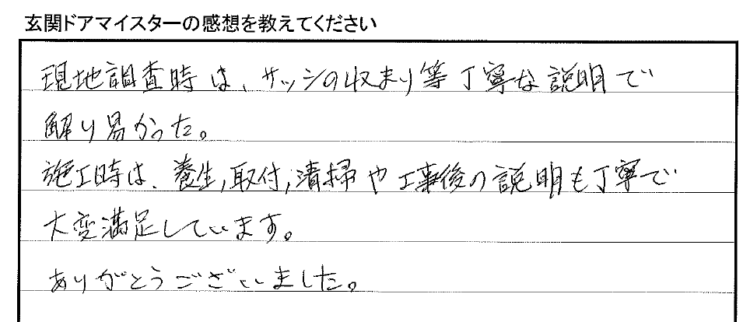 玄関ドアマイスターの感想を教えてください
現地調査時は、サッシの収まり等丁寧な説明で
解り易かった。
施工時は、養生,取付,清掃や工事後の説明も丁寧で
大変満足しています。
ありがとうございました。